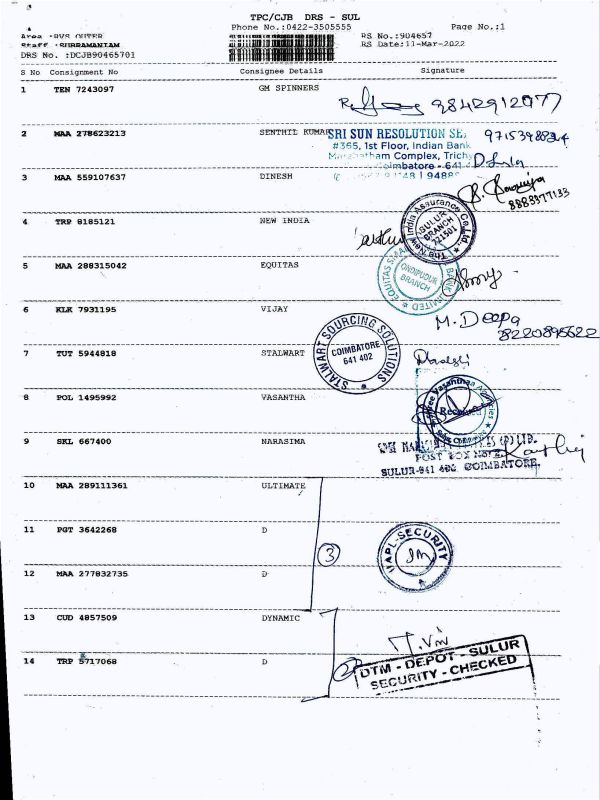 TPC/CJB DRS - SUL
Phone No.:0422-3505555 Page No.:1
Area :RVS OUTER RS No.:904657
Staff :SUBRAMANIAM RS Date:11-Mar-2022
DRS No. :DCJB90465701
S No Consignment No Consignee Details Signature
1 TEN 7243097 GM SPINNERS 9842912077
2 MAA 278623213 SENTHIL KUMAR
SRI SUN RESOLUTION
#365, 1st Floor, Indian Bank
Complex, Trichy
Coimbatore - 641
3 MAA 559107637 DINESH
8883377133
4 TRP 8185121 NEW INDIA
The New India Assurance Co. Ltd.
SULUR BRANCH 721501
5 MAA 288315042 EQUITAS
EQUITAS SMALL BANK LIMITED
ONDIPUDUR BRANCH
6 KLK 7931195 VIJAY M. Deepa
8220895622
7 TUT 5944818 STALWART
STALWART SOURCING SOLUTIONS
COIMBATORE 641 402
8 POL 1495992 VASANTHA
Sree Vasanthaa Agencies
Received
9 SKL 667400 NARASIMA
(P) LTD.
POST BOX NO
SULUR-641 402 COIMBATORE.
10 MAA 289111361 ULTIMATE
11 PGT 3642268 D
3
UAPL-SECURITY
12 MAA 277832735 D
13 CUD 4857509 DYNAMIC
14 TRP 5717068 D
2
DTM - DEPOT - SULUR
SECURITY - CHECKED